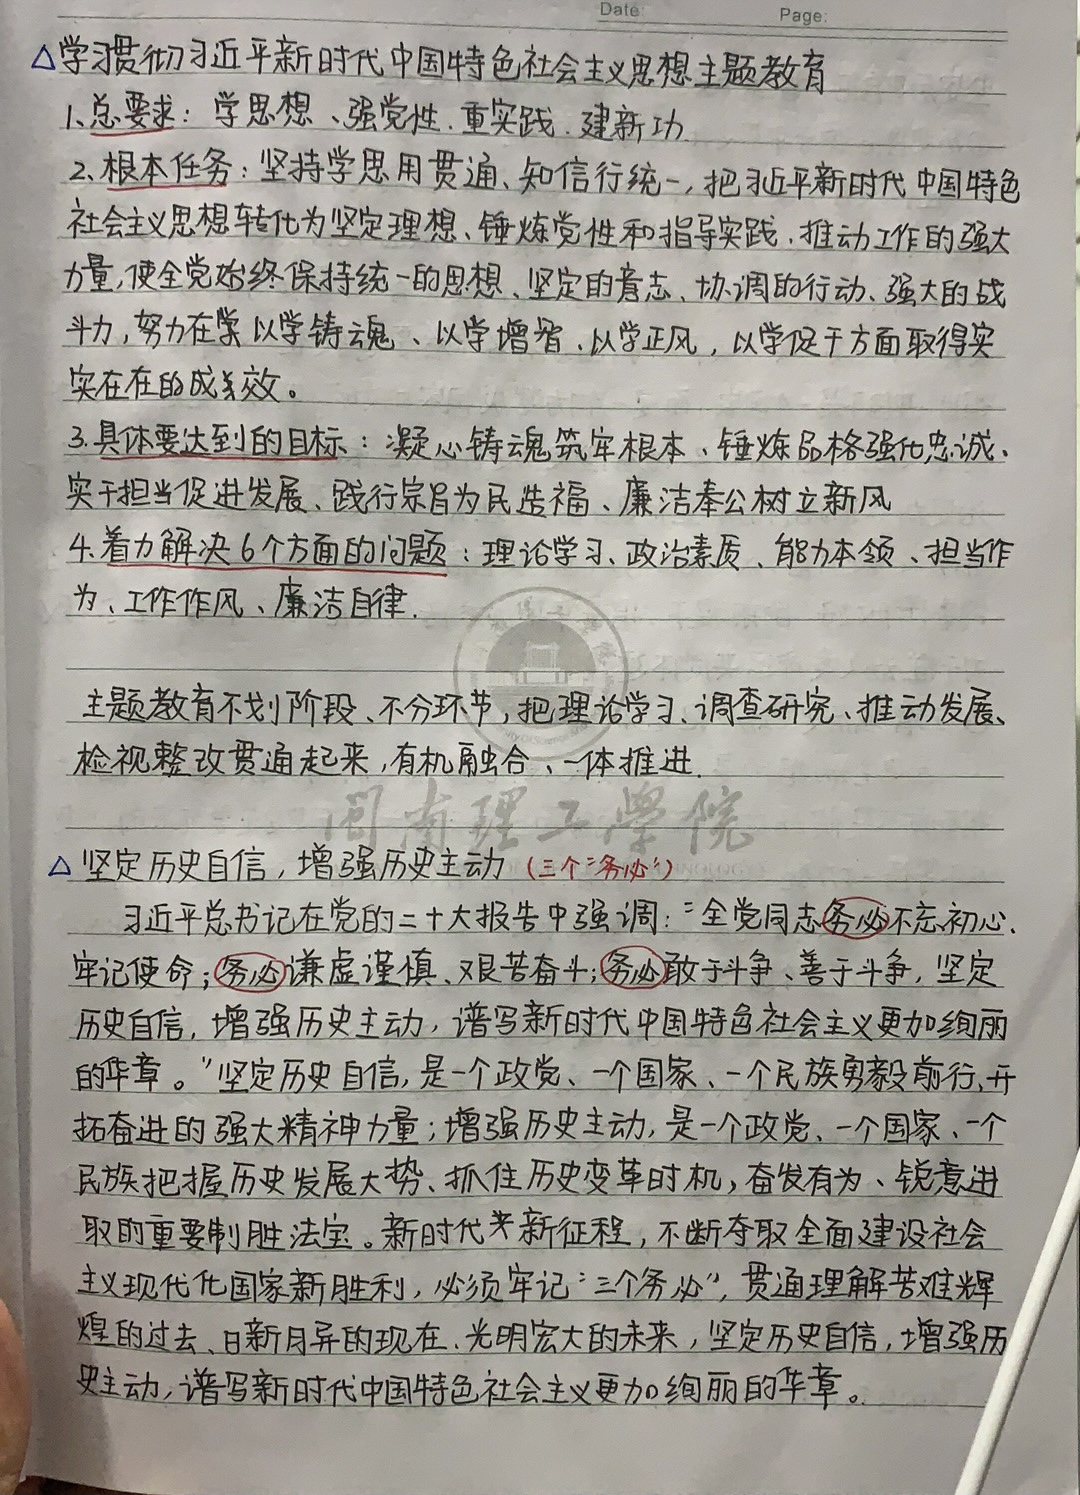 Date:
Page:
△学习贯彻习近平新时代中国特色社会主义思想主题教育
1、总要求：学思想、强党性、重实践、建新功
2、根本任务：坚持学思用贯通、知信行统一，把习近平新时代中国特色
社会主义思想转化为坚定理想、锤炼党性和指导实践、推动工作的强大
力量，使全党始终保持统一的思想、坚定的意志、协调的行动、强大的战
斗力，努力在以学铸魂、以学增智、以学正风，以学促干方面取得实
实在在的成效。
3、具体要达到的目标：凝心铸魂筑牢根本、锤炼品格强化忠诚、
实干担当促进发展、践行宗旨为民造福、廉洁奉公树立新风
4、着力解决6个方面的问题：理论学习、政治素质、能力本领、担当作
为、工作作风、廉洁自律.
主题教育不划阶段、不分环节，把理论学习、调查研究、推动发展、
检视整改贯通起来，有机融合、一体推进.
闽南理工學院
△坚定历史自信，增强历史主动（三个“务必”）
习近平总书记在党的二十大报告中强调：“全党同志务必不忘初心、
牢记使命；务必谦虚谨慎、艰苦奋斗；务必敢于斗争、善于斗争，坚定
历史自信，增强历史主动，谱写新时代中国特色社会主义更加绚丽
的华章。”坚定历史自信，是一个政党、一个国家、一个民族勇毅前行、开
拓奋进的强大精神力量；增强历史主动，是一个政党、一个国家、一个
民族把握历史发展大势、抓住历史变革时机，奋发有为、锐意进
取的重要制胜法宝。新时代新征程，不断夺取全面建设社会
主义现代化国家新胜利，必须牢记“三个务必”，贯通理解苦难辉
煌的过去、日新月异的现在、光明宏大的未来，坚定历史自信，增强历
史主动，谱写新时代中国特色社会主义更加绚丽的华章。